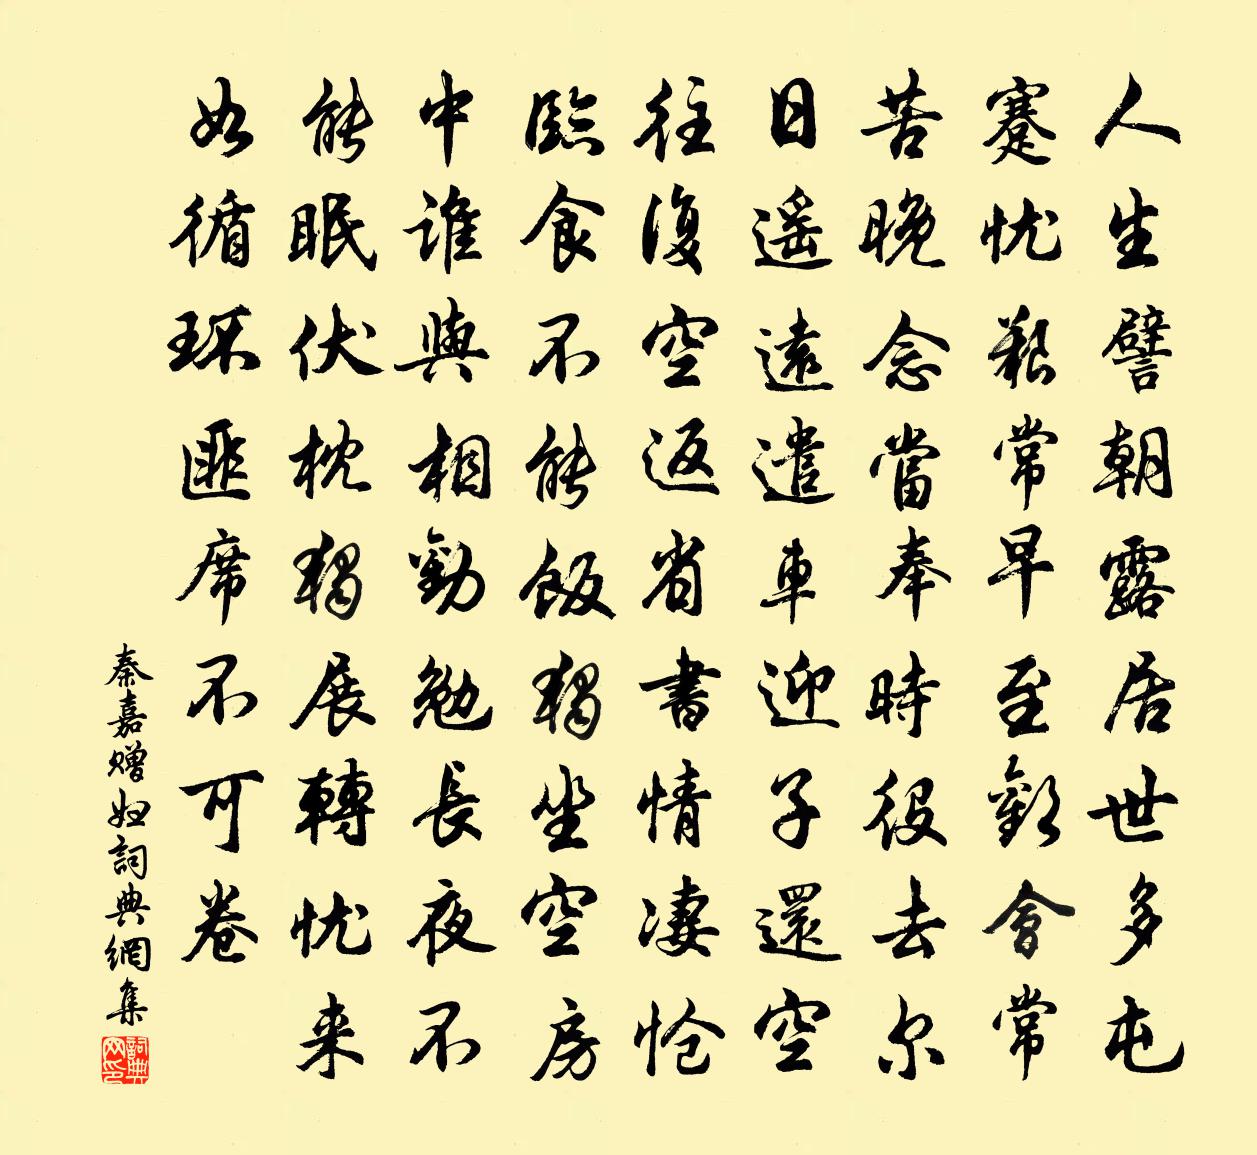 人生譬朝露居世多屯
蹇忧艱常早至歡會常
苦晚念當奉時役去尔
日遥遠遣車迎子還空
往復空返省書情凄怆
臨食不能飯獨坐空房
中誰與相勸勉長夜不
能眠伏枕獨展轉忧来
如循环匪席不可卷
秦嘉赠妇詞典網集
詞典网印